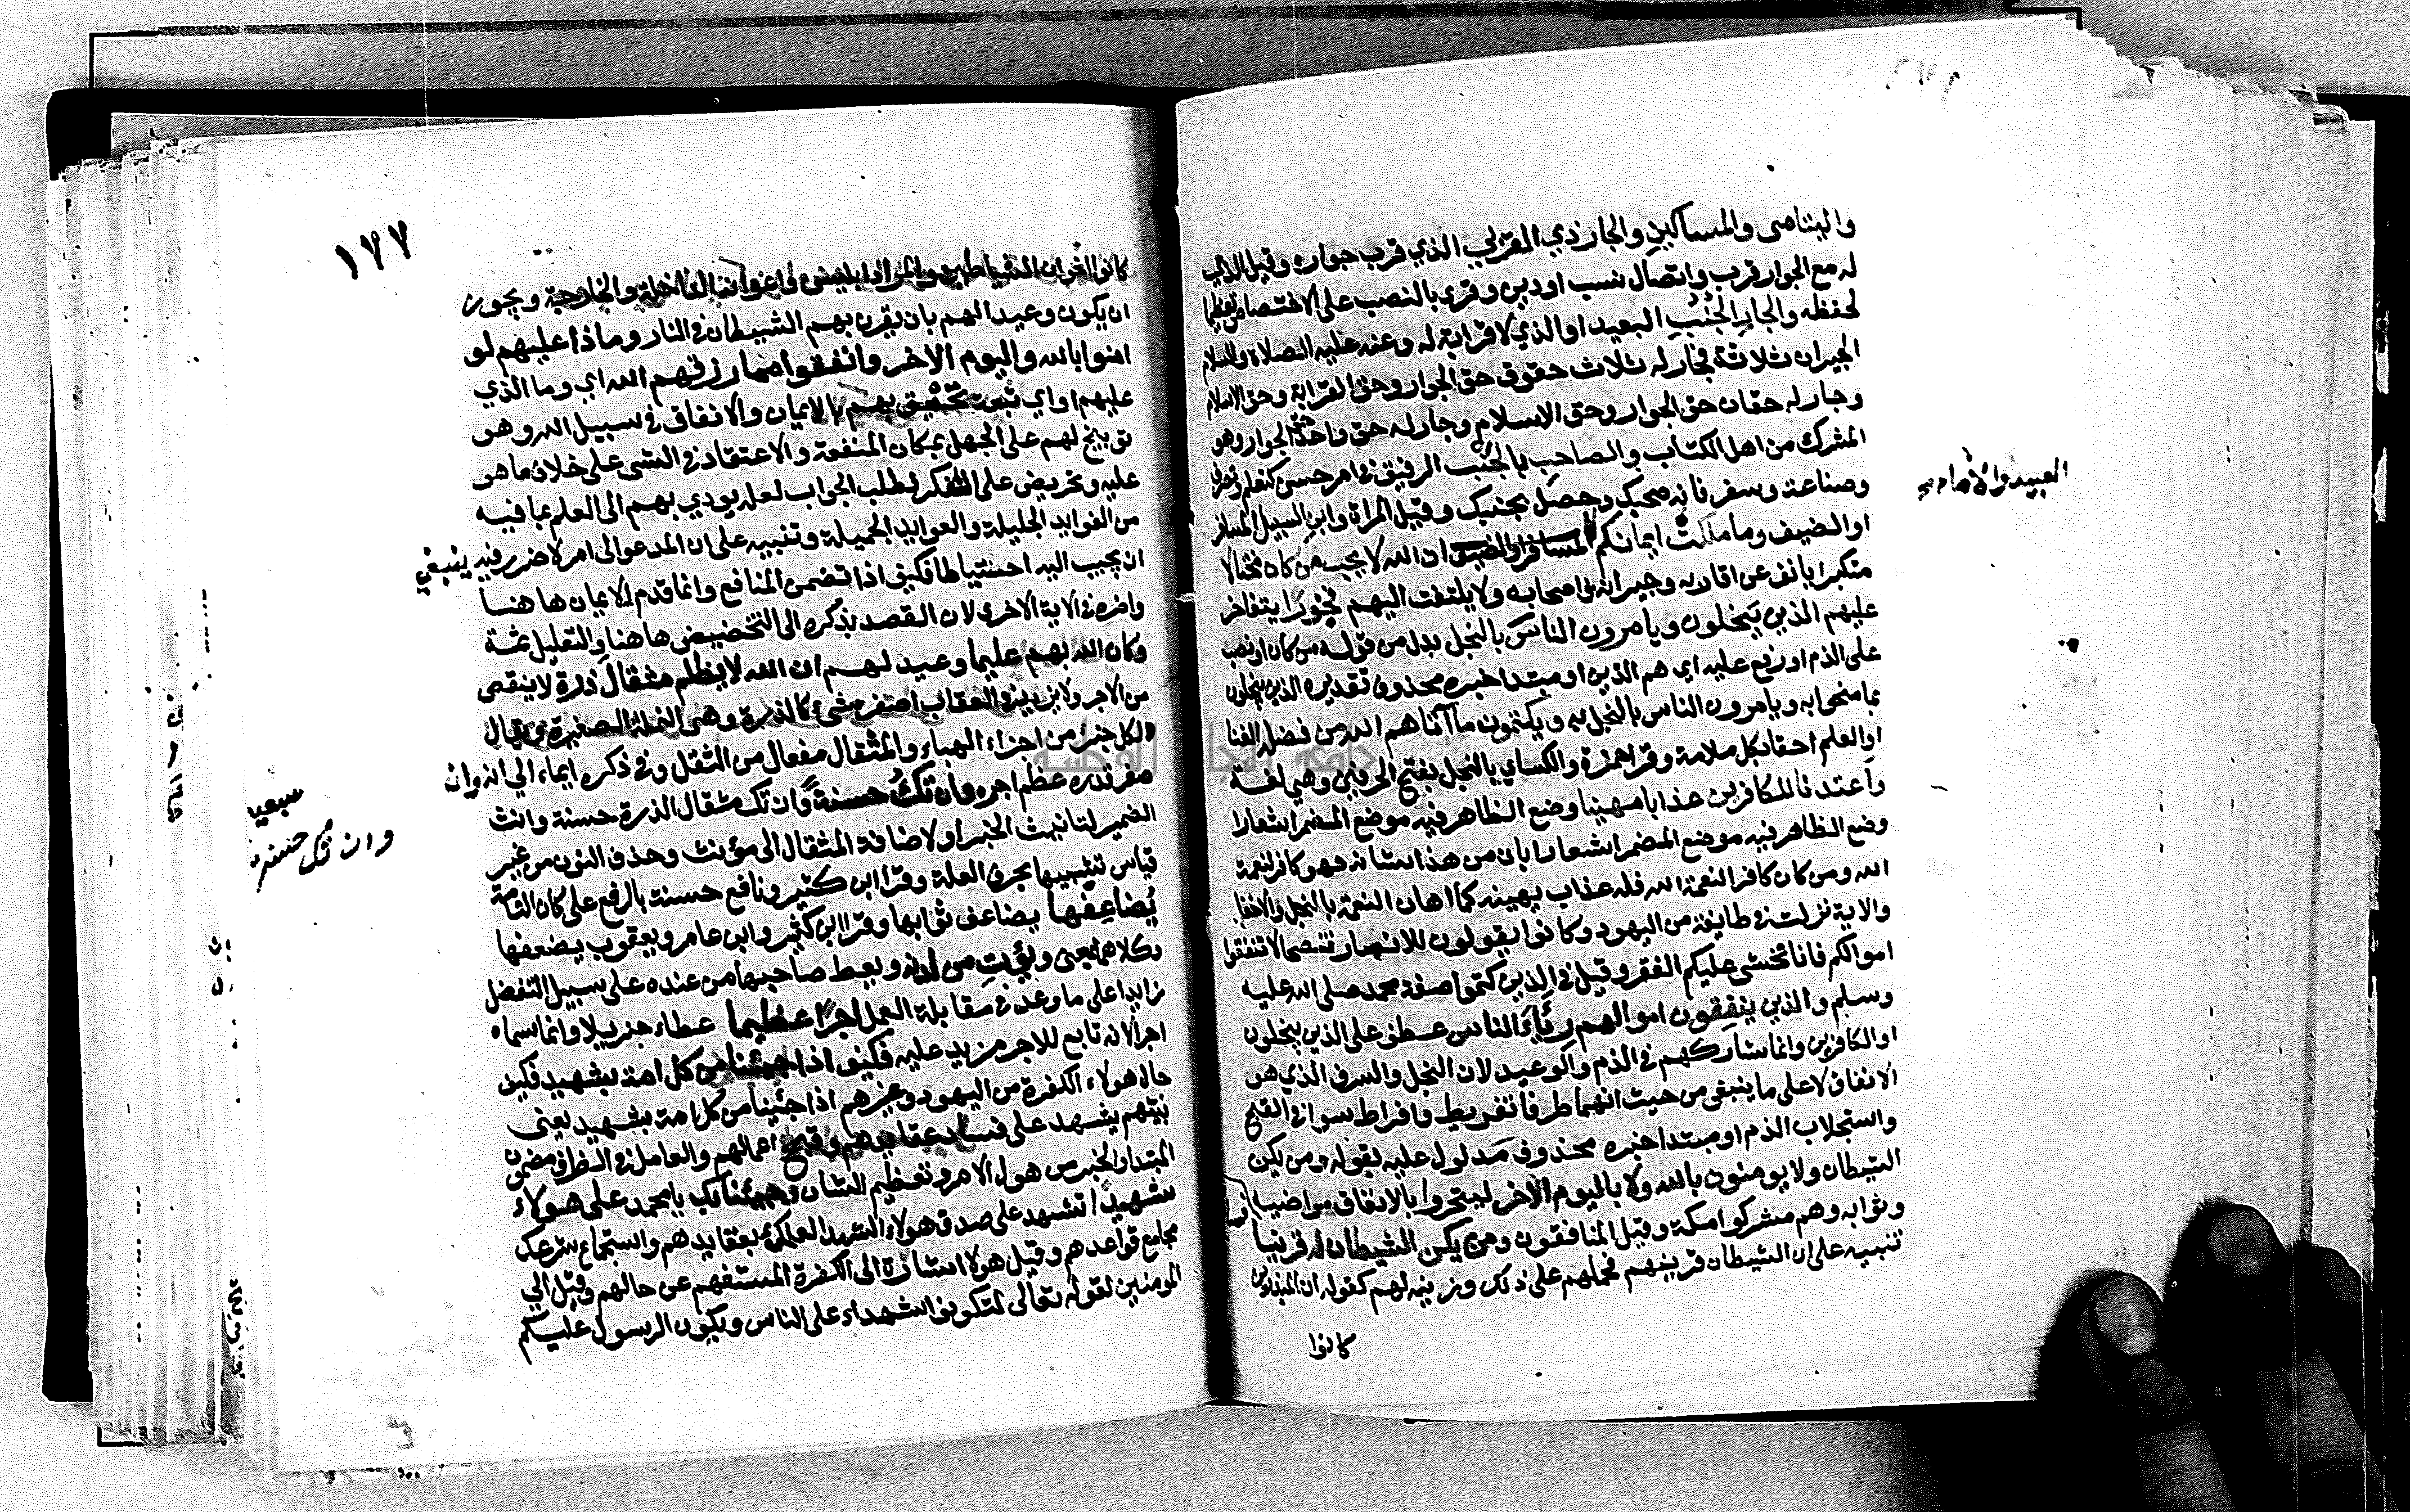 واليتامى والمساكين والجار ذي القربى الذي قرب جواره وقيل الذي
له مع الجوار قرب واتصال بنسب او دين وقرى بالنصب على الاختصاص تعظيما
لحفظه والجار الجُنُب البعيد او الذي لا قرابة له وعنه عليه الصلاة والسلام
الجيران ثلاثة فجار له ثلاث حقوق حق الجوار وحق القرابة وحق الاسلام
وجار له حقان حق الجوار وحق الاسلام وجار له حق واحد حق الجوار وهو
المشرك من اهل الكتاب والصاحب بالجَنْب الرفيق في امر حسن كتعلم وتصرف
وصناعة وسفر فانه صحبك وحصل بجنبك وقيل المراة وابن السبيل المسافر
او الضيف وما ملكت ايمانكم المسافر او الضيف ان الله لا يحب من كان مختالا
العبيد والاماء صح
متكبرا يانف عن اقاربه وجيرانه واصحابه ولا يلتفت اليهم فخورًا يتفاخر
عليهم الذين يَبخلون ويامرون الناسَ بالبخل بدل من قوله من كان او نصب
على الذم او رفع عليه اي هم الذين او مبتدا خبره محذوف تقديره الذين يبخلون
بما منحوا به ويامرون الناس بالبخل به ويكتمون ما آتاهم الله من فضله الغنا
او العلم احقا بكل ملامة وقرا حمزة والكساي بالبخل بفتح الحرفين وهي لغة
واعتدنا للكافرين عذابا مهينا وضع الظاهر فيه موضع المضمر اشعارا
وضع الظاهر فيه موضع المضمر اشعارا بان من هذا شانه فهو كافر لنعمة
الله ومن كان كافر النعمة الله فله عذاب يهينه كما اهان النعمة بالبخل والاخفا
والاية نزلت في طايفة من اليهود وكانوا يقولون للانصار تنصحا لا تنفقوا
اموالكم فانا نخشى عليكم الفقر وقيل في الذين كتموا صفة محمد صلى الله عليه
وسلم والذين ينفِقون اموالهم رِئَاءَ الناس عطف على الذين يبخلون
او الكافرين وانما شاركهم في الذم والوعيد لان البخل والسرف الذي هو
الانفاق لا على ما ينبغي من حيث انهما طرفا تفريط وافراط سوا في القبح
واستجلاب الذم او مبتدا خبره محذوف مدلول عليه بقوله ومن يكن
الشيطان ولا يومنون بالله ولا باليوم الاخر ليتحروا بالانفاق مراضيه
وثوابه وهم مشركوا مكة وقيل المنافقون ومن يكن الشيطان له قرينا
تنبيه على ان الشيطان قرينهم فحملهم على ذلك وزينه لهم كقوله ان المبذرين
كانوا
١٧٧
كانوا اخوان الشياطين والمراد ابليس واعوانه الداخلة والخارجة ويجوز
ان يكون وعيدا لهم بان يقرن بهم الشيطان في النار وماذا عليهم لو
امنوا بالله واليوم الاخر وانفقوا مما رزقهم الله اي وما الذي
عليهم او اي تبعة تحيق بهم بالايمان والانفاق في سبيل الله وهو
توبيخ لهم على الجهل بمكان المنفعة والاعتقاد في الشى على خلاف ما هو
عليه وتحريض على التفكر لطلب الجواب لعله يودي بهم الى العلم بما فيه
من الفوايد الجليلة والعوايد الجميلة وتنبيه على ان المدعو الى امر لا ضرر فيه ينبغي
ان يجيب اليه احتياطا فكيف اذا تضمن المنافع وانما قدم الايمان ها هنا
واخره في الاية الاخرى لان القصد بذكره الى التخصيص ها هنا والتعليل ثمة
وكان الله بهم عليما وعيد لهم ان الله لا يظلم مثقالَ ذرة لا ينقص
من الاجر ولا يزيد في العقاب اصغر شىء كالذرة وهى النملة الصغيرة ويقال
لكل جزء من اجزاء الهباء والمثقال مفعال من الثقل وفي ذكره ايماء الي انه وان
صغر قدره عظم اجره وان تكُ حسنةً وان تك مثقال الذرة حسنة وانث
وان تك حسنة
الضمير لتانيث الخبر او لاضافة المثقال الى مؤنث وحذف النون من غير
قياس تشبيها بحرف العلة وقرا ابن كثير ونافع حسنة بالرفع على كان التامة
يُضاعِفها يضاعف ثوابها وقرا ابن كثير وابن عامر ويعقوب يضعفها
وكلاهما بمعنى ويؤت من لدنه ويعط صاحبها من عنده على سبيل التفضل
زايدا على ما وعد في مقابلة العمل اجرًا عظيما عطاء جزيلا وانما سماه
اجرا لانه تابع للاجر مزيد عليه فكيف اذا جئنا من كل امة بشهيد فكيف
حال هولاء الكفرة من اليهود وغيرهم اذا جئينا من كل امة بشهيد يعني
نبيهم يشهد على فساد عقايدهم وقبح اعمالهم والعامل في الظرف مضمون
المبتدا والخبر من هول الامر وتعظيم الشان وجئنا بك يا محمد على هولاء
شهيدًا تشهد على صدق هولاء الشهدا لعلمك بعقايدهم واستجماع شرعك
مجامع قواعدهم وقيل هولا اشارة الى الكفرة المستفهم عن حالهم وقيل الي
المومنين لقوله تعالى لتكونوا شهداء على الناس ويكون الرسول عليكم